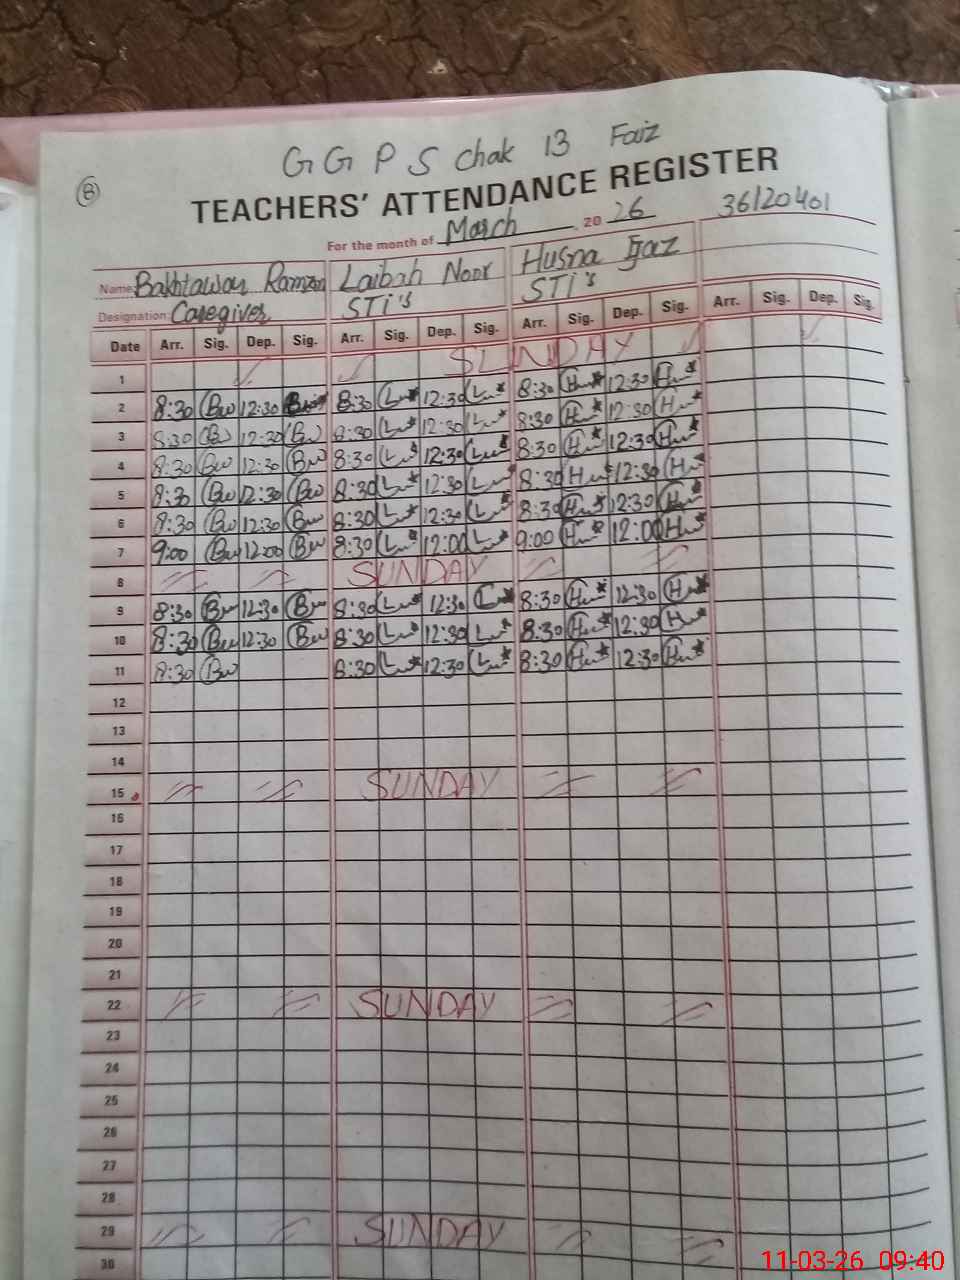 G G P S Chak 13 Faiz
8
TEACHERS' ATTENDANCE REGISTER
36120401
For the month of March, 20 26
Name: Bakhtawar Ramzan Laibah Noor Husna Ijaz
Designation: Caregiver STI's STI's
Date Arr. Sig. Dep. Sig. Arr. Sig. Dep. Sig. Arr. Sig. Dep. Sig. Arr. Sig. Dep. Sig.
1 SUNDAY
2 8:30 Bw 12:30 8:30 12:30 8:30 12:30
3 8:30 Bw 12:30 Bw 8:30 12:30 8:30 12:30
4 8:30 Bw 12:30 Bw 8:30 12:30 8:30 12:30
5 8:30 Bw 12:30 Bw 8:30 12:30 8:30 12:30
6 8:30 Bw 12:30 Bw 8:30 12:30 8:30 12:30
7 9:00 Bw 12:00 Bw 8:30 12:00 9:00 12:00
8 SUNDAY
9 8:30 Bw 12:30 Bw 8:30 12:30 8:30 12:30
10 8:30 Bw 12:30 Bw 8:30 12:30 8:30 12:30
11 8:30 Bw 8:30 12:30 8:30 12:30
12
13
14
15 SUNDAY
16
17
18
19
20
21
22 SUNDAY
23
24
25
26
27
28
29 SUNDAY
30
11-03-26 09:40